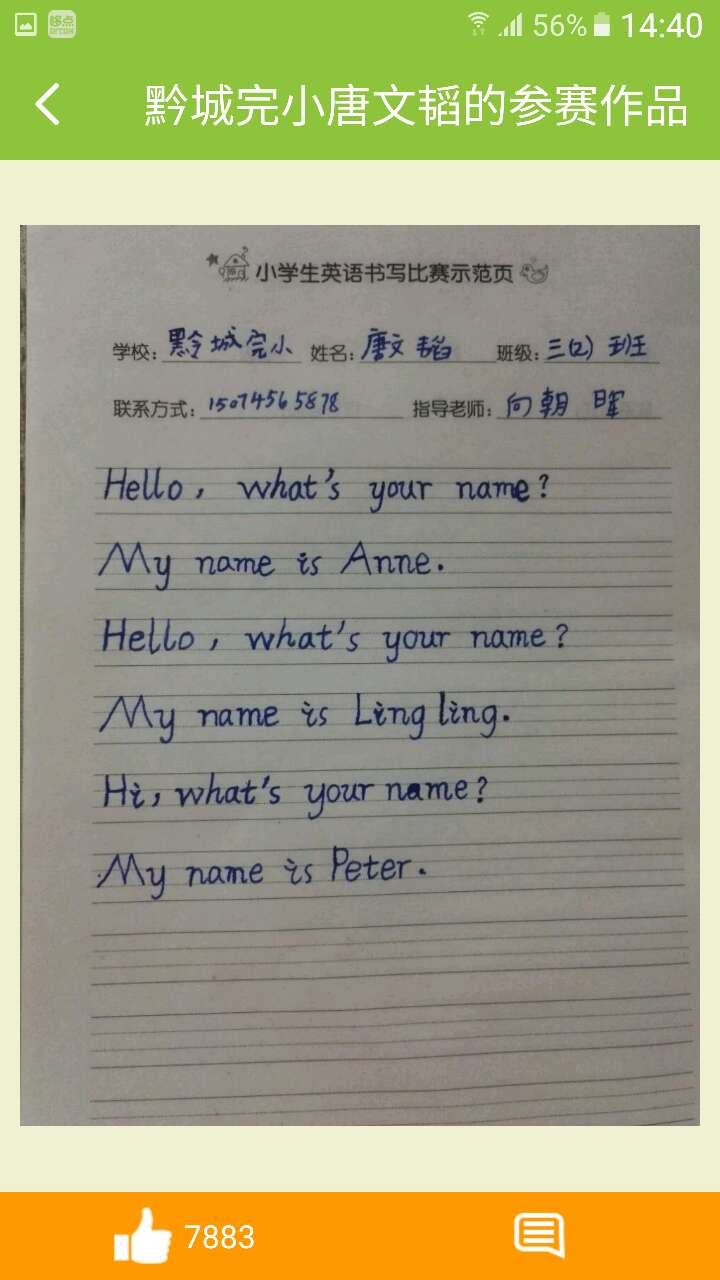 56% 14:40
黔城完小唐文韬的参赛作品
小学生英语书写比赛示范页
学校: 黔城完小 姓名: 唐文韬 班级: 三(2)班
联系方式: 15074565878 指导老师: 向朝晖
Hello, what's your name?
My name is Anne.
Hello, what's your name?
My name is Ling ling.
Hi, what's your name?
My name is Peter.
7883